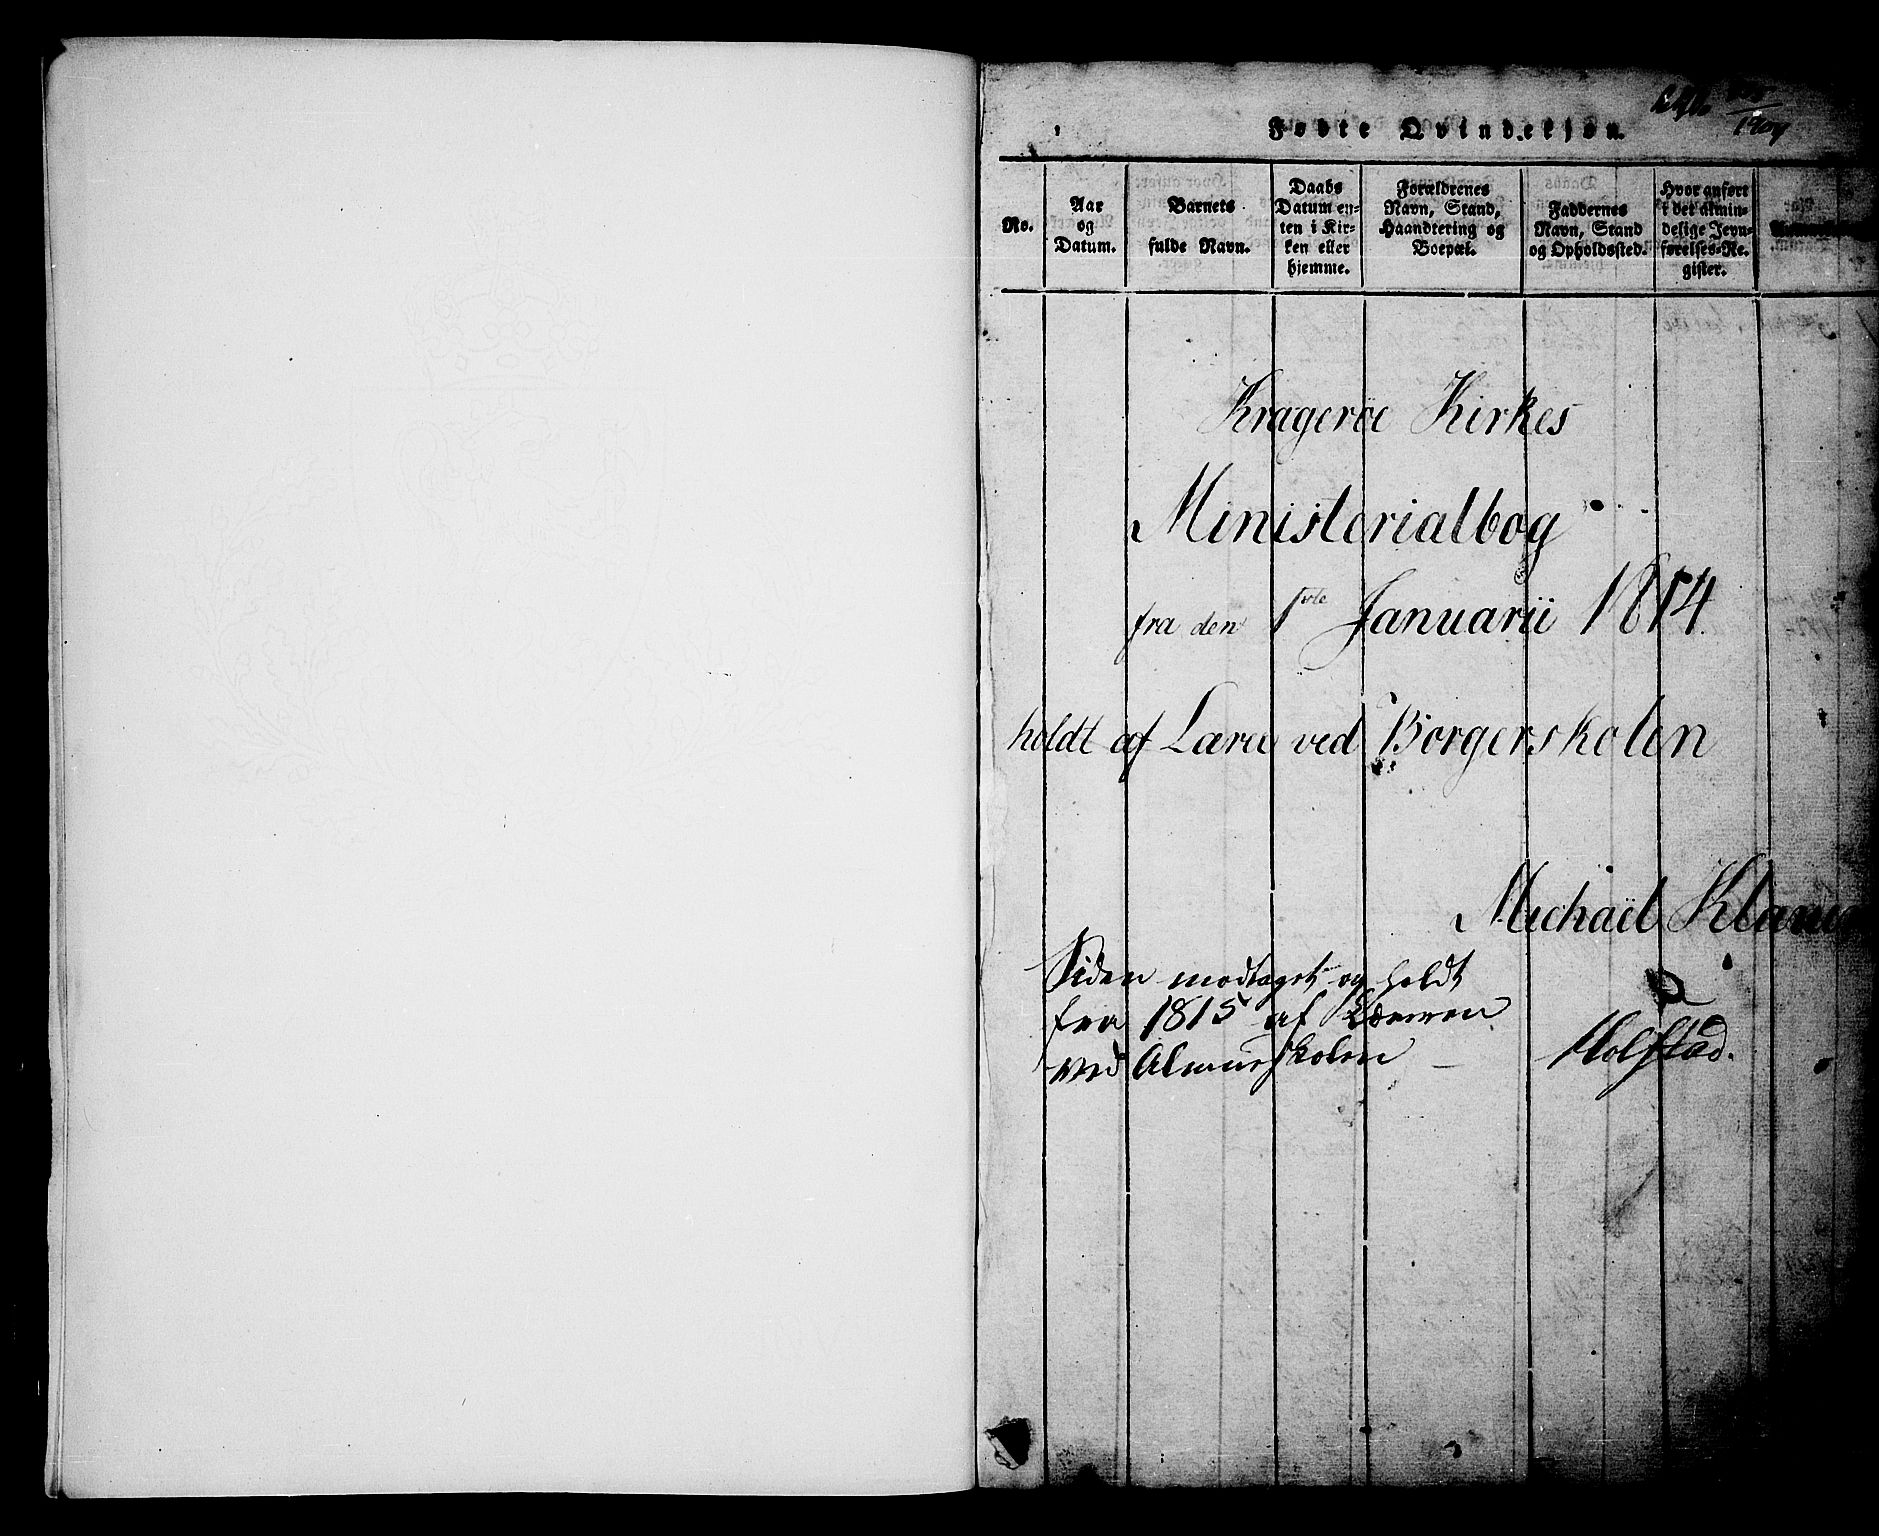 1904
Fødte Qvindekjøn.
No.
Aar
og
Datum.
Barnets
fulde Navn.
Daabs
Datum en-
ten i Kir-
ken eller
hjemme.
Forældrenes
Navn, Stand,
Haandtering og
Boepæl.
Faddernes
Navn, Stand
og Opholdssted.
Hvor anført
i det almin-
delige Jevn-
førelses-Re-
gister.
Kragerøe Kirkes
Ministerialbog
fra den 1ste Januarii 1814.
holdt af Lærer ved Borgerskolen
Michaël
Siden modtaget og holdt
fra 1815 af Læreren
ved Almueskolen
Holfstad.